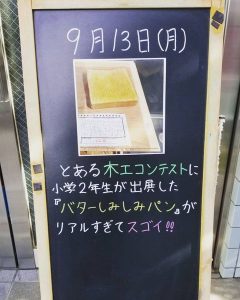 9月13日(月)
とある木工コンテストに
小学2年生が出展した
『バターしみしみパン』が
リアルすぎてスゴイ!!